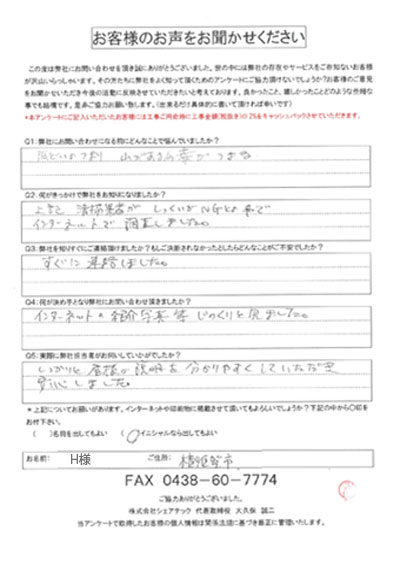 お客様のお声をお聞かせください
この度は弊社にお問い合わせを頂き誠にありがとうございました。世の中には弊社の存在やサービスをご存知ないお客様
が沢山いらっしゃいます。その方たちに弊社をよく知って頂くためのアンケートにご協力頂けないでしょうか?お客様のご意見
をお聞かせいただき今後の活動に反映させていただきたいと考えております。良かったこと、嬉しかったことどのような些細な
事でも結構です。是非ご協力お願い致します。(出来るだけ具体的に書いて頂ければ幸いです)
*本アンケートにご記入いただいたお客様には工事ご用命時に工事金額(税抜き)の2%をキャッシュバックさせていただきます。
Q1:弊社にお問い合わせになる前にどんなことで悩んでいましたか?
Q2:何がきっかけで弊社をお知りになりましたか?
しっくいが NG
インターネットで 調査しました。
Q3:弊社を知りすぐにご連絡頂けましたか?もしご決断されなかったとしたらどんなことがご不安でしたか?
すぐに 連絡しました。
Q4:何が決め手となり弊社にお問い合わせ頂きましたか?
インターネット 紹介写真 等 じっくりと見ました。
Q5:実際に弊社担当者がお伺いしていかがでしたか?
しっかりと 屋根の説明を 分かりやすく していただき
安心しました。
*上記についてお願いがあります。インターネットや印刷物に掲載させて頂いてもよろしいでしょうか?下記の中から○印を
お付け下さい。
( )名前を出してもよい ( )イニシャルなら出してもよい
お名前: H様 ご住所: 横須賀市
FAX 0438-60-7774
ご協力ありがとうございました。
株式会社シェアテック 代表取締役 大久保 誠二
当アンケートで取得したお客様の個人情報は関係法認に基づき厳正に管理いたします。